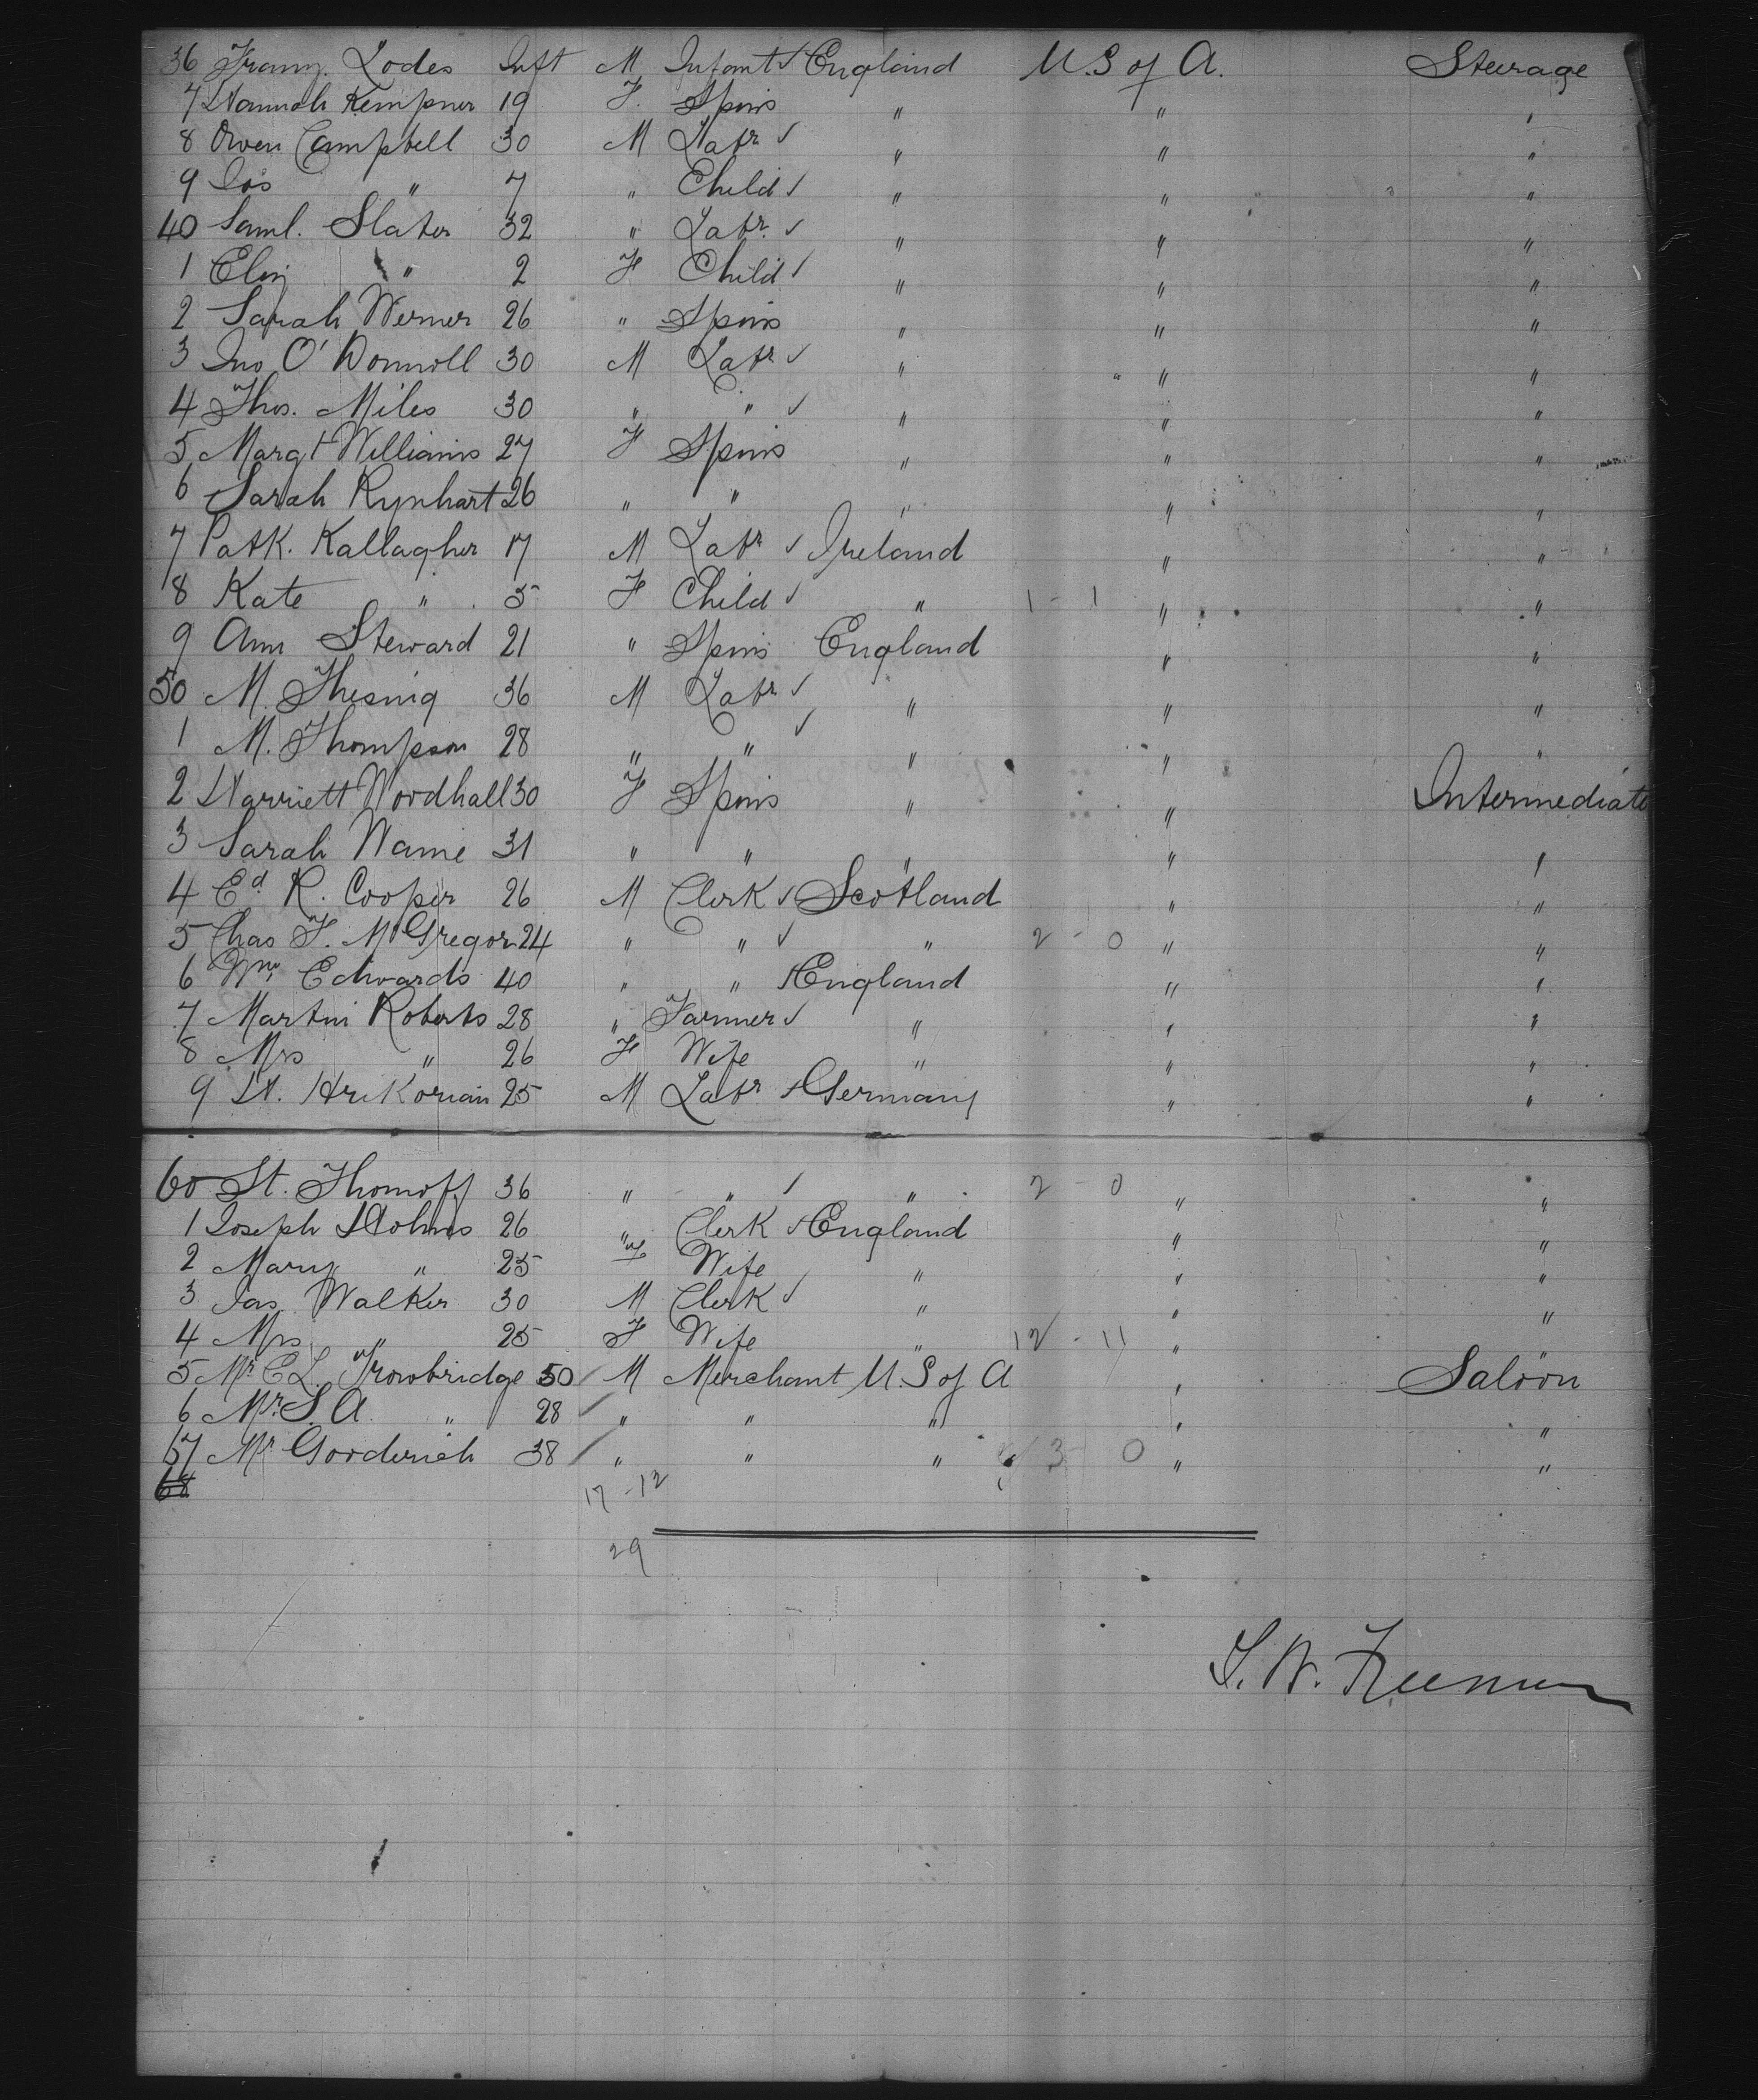 36 Franz Lodes Inft M Infant ✓ England U.S of A. Steerage
7 Hannah Kempner 19 F. Spins " " "
8 Owen Campbell 30 M Labr ✓ " " "
9 Jos " 7 " Child ✓ " " "
40 Saml. Slater 32 " Labr. ✓ " " "
1 Eliz " 2 F Child ✓ " " "
2 Sarah Werner 26 " Spins " " "
3 Jno O'Donnoll 30 M Labr ✓ " " "
4 Thos. Miles 30 " " ✓ " " "
5 Margt Williams 27 F Spins " " "
6 Sarah Rynhart 26 " " " " "
7 Patk. Kallagher 17 M Labr ✓ Ireland " "
8 Kate " 5 F Child ✓ " 1 - 1 " "
9 Ann Steward 21 " Spins England " "
50 M. Thesnig 36 M Labr ✓ " " "
1 M. Thompson 28 " " ✓ " " "
2 Harriett Woodhall 30 F Spins " " Intermediate
3 Sarah Wame 31 " " " " "
4 Ed R. Cooper 26 M Clerk ✓ Scotland " "
5 Chas F. McGregor 24 " " ✓ " 2 - 0 " "
6 Wm Edwards 40 " " ✓ England " "
7 Martin Roberts 28 " Farmer ✓ " " "
8 Mrs " 26 F Wife " " "
9 H. Hrikorian 25 M Labr ✓ Germany " "
60 St. Thomoff 36 " " ✓ " 2 - 0 " "
1 Joseph Holmes 26 " Clerk ✓ England " "
2 Mary " 25 F Wife " " "
3 Jas Walker 30 M Clerk ✓ " " "
4 Mrs " 25 F Wife " 12 - 11 " "
5 Mr E L. Trowbridge 50 ✓ M Merchant U.S of A " Saloon
6 Mr S. A. " 28 ✓ " " " " "
67 Mr Gorderich 38 ✓ " " " 3 0 " "
68 17 - 12
29